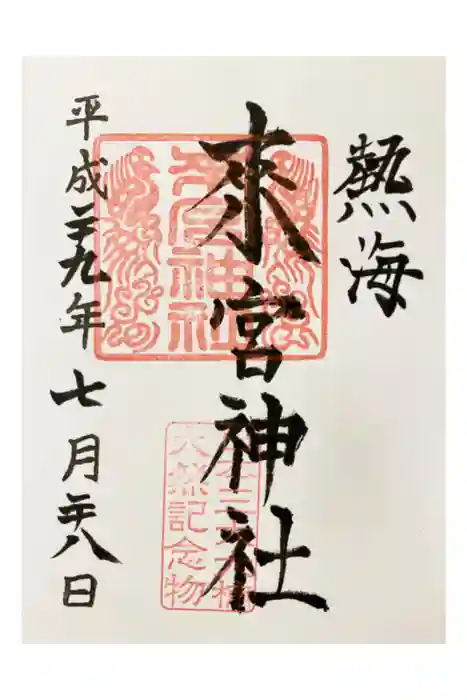 熱海
來宮神社
平成二十九年七月二十八日
來宮神社
天然記念物